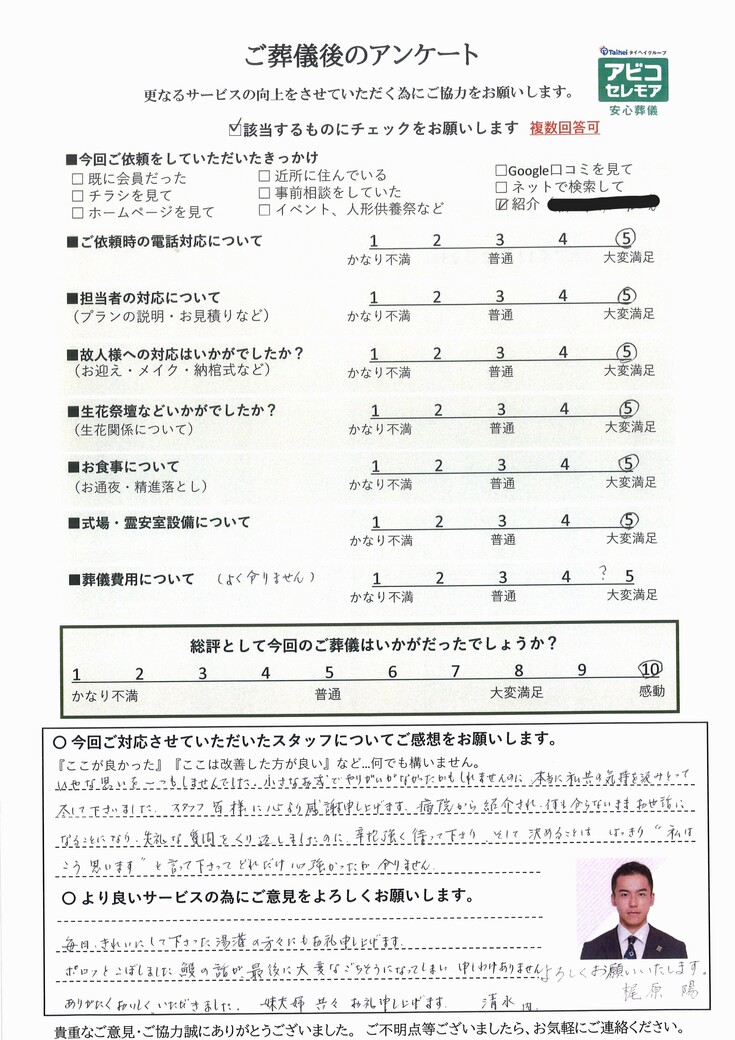 ご葬儀後のアンケート
Taihei タイヘイグループ
アビコ
セレモア
安心葬儀
更なるサービスの向上をさせていただく為にご協力をお願いします。
☑該当するものにチェックをお願いします 複数回答可
■今回ご依頼をしていただいたきっかけ
□ 既に会員だった □ 近所に住んでいる □Google口コミを見て
□ チラシを見て □ 事前相談をしていた □ ネットで検索して
□ ホームページを見て □ イベント、人形供養祭など ☑ 紹介
■ご依頼時の電話対応について 1 2 3 4 5
かなり不満 普通 大変満足
■担当者の対応について 1 2 3 4 5
（プランの説明・お見積りなど） かなり不満 普通 大変満足
■故人様への対応はいかがでしたか？ 1 2 3 4 5
（お迎え・メイク・納棺式など） かなり不満 普通 大変満足
■生花祭壇などいかがでしたか？ 1 2 3 4 5
（生花関係について） かなり不満 普通 大変満足
■お食事について 1 2 3 4 5
（お通夜・精進落とし） かなり不満 普通 大変満足
■式場・霊安室設備について 1 2 3 4 5
かなり不満 普通 大変満足
■葬儀費用について （よく分りません） 1 2 3 4 ? 5
かなり不満 普通 大変満足
総評として今回のご葬儀はいかがだったでしょうか？
1 2 3 4 5 6 7 8 9 10
かなり不満 普通 大変満足 感動
○ 今回ご対応させていただいたスタッフについてご感想をお願いします。
『ここが良かった』『ここは改善した方が良い』など…何でも構いません。
いやな思いを一つもしませんでした。小さなお式でやりがいがなかったかもしれませんのに 本当に私共の気持を汲みとって
下さいました。スタッフ皆様に心より感謝申し上げます。病院から紹介され、何も分らないままお世話に
なることになり、失礼な質問をくり返しましたのに 辛抱強く待って下さり、そして決めることは はっきり "私は
こう思います" と言って下さってどれだけ心強かったか分りません。
○ より良いサービスの為にご意見をよろしくお願いします。
毎日、きれいにして下さった湯灌の方々にもお礼申し上げます。
ポロッとこぼしました鰻の話が最後に大変なごちそうになってしまい 申しわけありません
よろしくお願いいたします。
梶原 陽
ありがたくおいしくいただきました。 妹夫婦共々お礼申し上げます。 清水 内
貴重なご意見・ご協力誠にありがとうございました。 ご不明点等ございましたら、お気軽にご連絡ください。